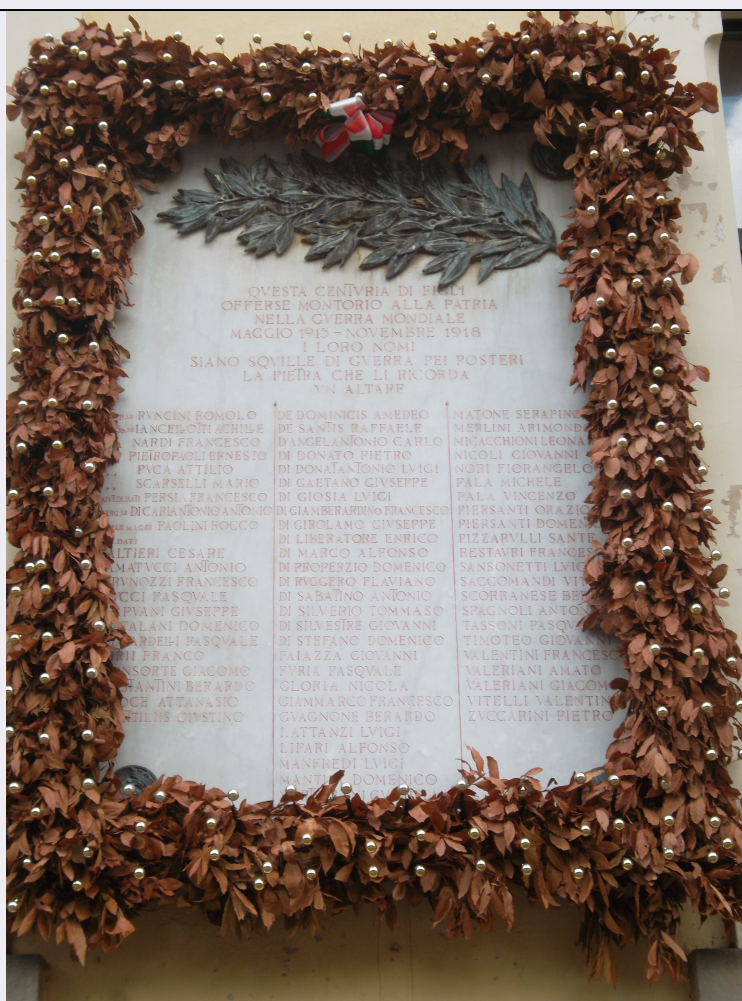 QVESTA CENTVRIA DI FIGLI
OFFERSE MONTORIO ALLA PATRIA
NELLA GVERRA MONDIALE
MAGGIO 1915 - NOVEMBRE 1918
I LORO NOMI
SIANO SQVILLE DI GVERRA PEI POSTERI
LA PIETRA CHE LI RICORDA
VN ALTARE
RVNCINI ROMOLO
IANCELOTTI ACHILLE
NARDI FRANCESCO
PIETROPAOLI ERNESTO
PVCA ATTILIO
SCARSELLI MARIO
PERSIA FRANCESCO
DI CARLANTONIO ANTONIO
PAOLINI ROCCO
DATI
ALTIERI CESARE
AMATVCCI ANTONIO
FRANCESCO
PASQVALE
GIVSEPPE
DOMENICO
PASQVALE
FRANCO
GIACOMO
BERARDO
ATTANASIO
GIVSTINO
DE DOMINICIS AMEDEO
DE SANTIS RAFFAELE
D'ANGELANTONIO CARLO
DI DONATO PIETRO
DI DONATANTONIO LVIGI
DI GAETANO GIVSEPPE
DI GIOSIA LVIGI
DI GIAMBERARDINO FRANCESCO
DI GIROLAMO GIVSEPPE
DI LIBERATORE ENRICO
DI MARCO ALFONSO
DI PROPERZIO DOMENICO
DI RVGGERO FLAVIANO
DI SABATINO ANTONIO
DI SILVERIO TOMMASO
DI SILVESTRE GIOVANNI
DI STEFANO DOMENICO
FAIAZZA GIOVANNI
FVRIA PASQVALE
GLORIA NICOLA
GIAMMARCO FRANCESCO
GVAGNONE BERARDO
LATTANZI LVIGI
LIPARI ALFONSO
MANFREDI LVIGI
DOMENICO
MATONE SERAFINO
MERLINI ARIMOND
MICACCHIONI LEONA
NICOLI GIOVANNI
NORI FIORANGELO
PALA MICHELE
PALA VINCENZO
PIERSANTI ORAZIO
PIERSANTI DOMEN
PIZZARVLLI SANTE
RESTAVRI FRANCES
SANSONETTI LVIGI
SACCOMANDI VIT
SCORRANESE BER
SPAGNOLI ANTON
TASSONI PASQV
TIMOTEO GIOVANNI
VALENTINI FRANCESC
VALERIANI AMATO
VALERIANI GIACOM
VITELLI VALENTIN
ZVCCARINI PIETRO